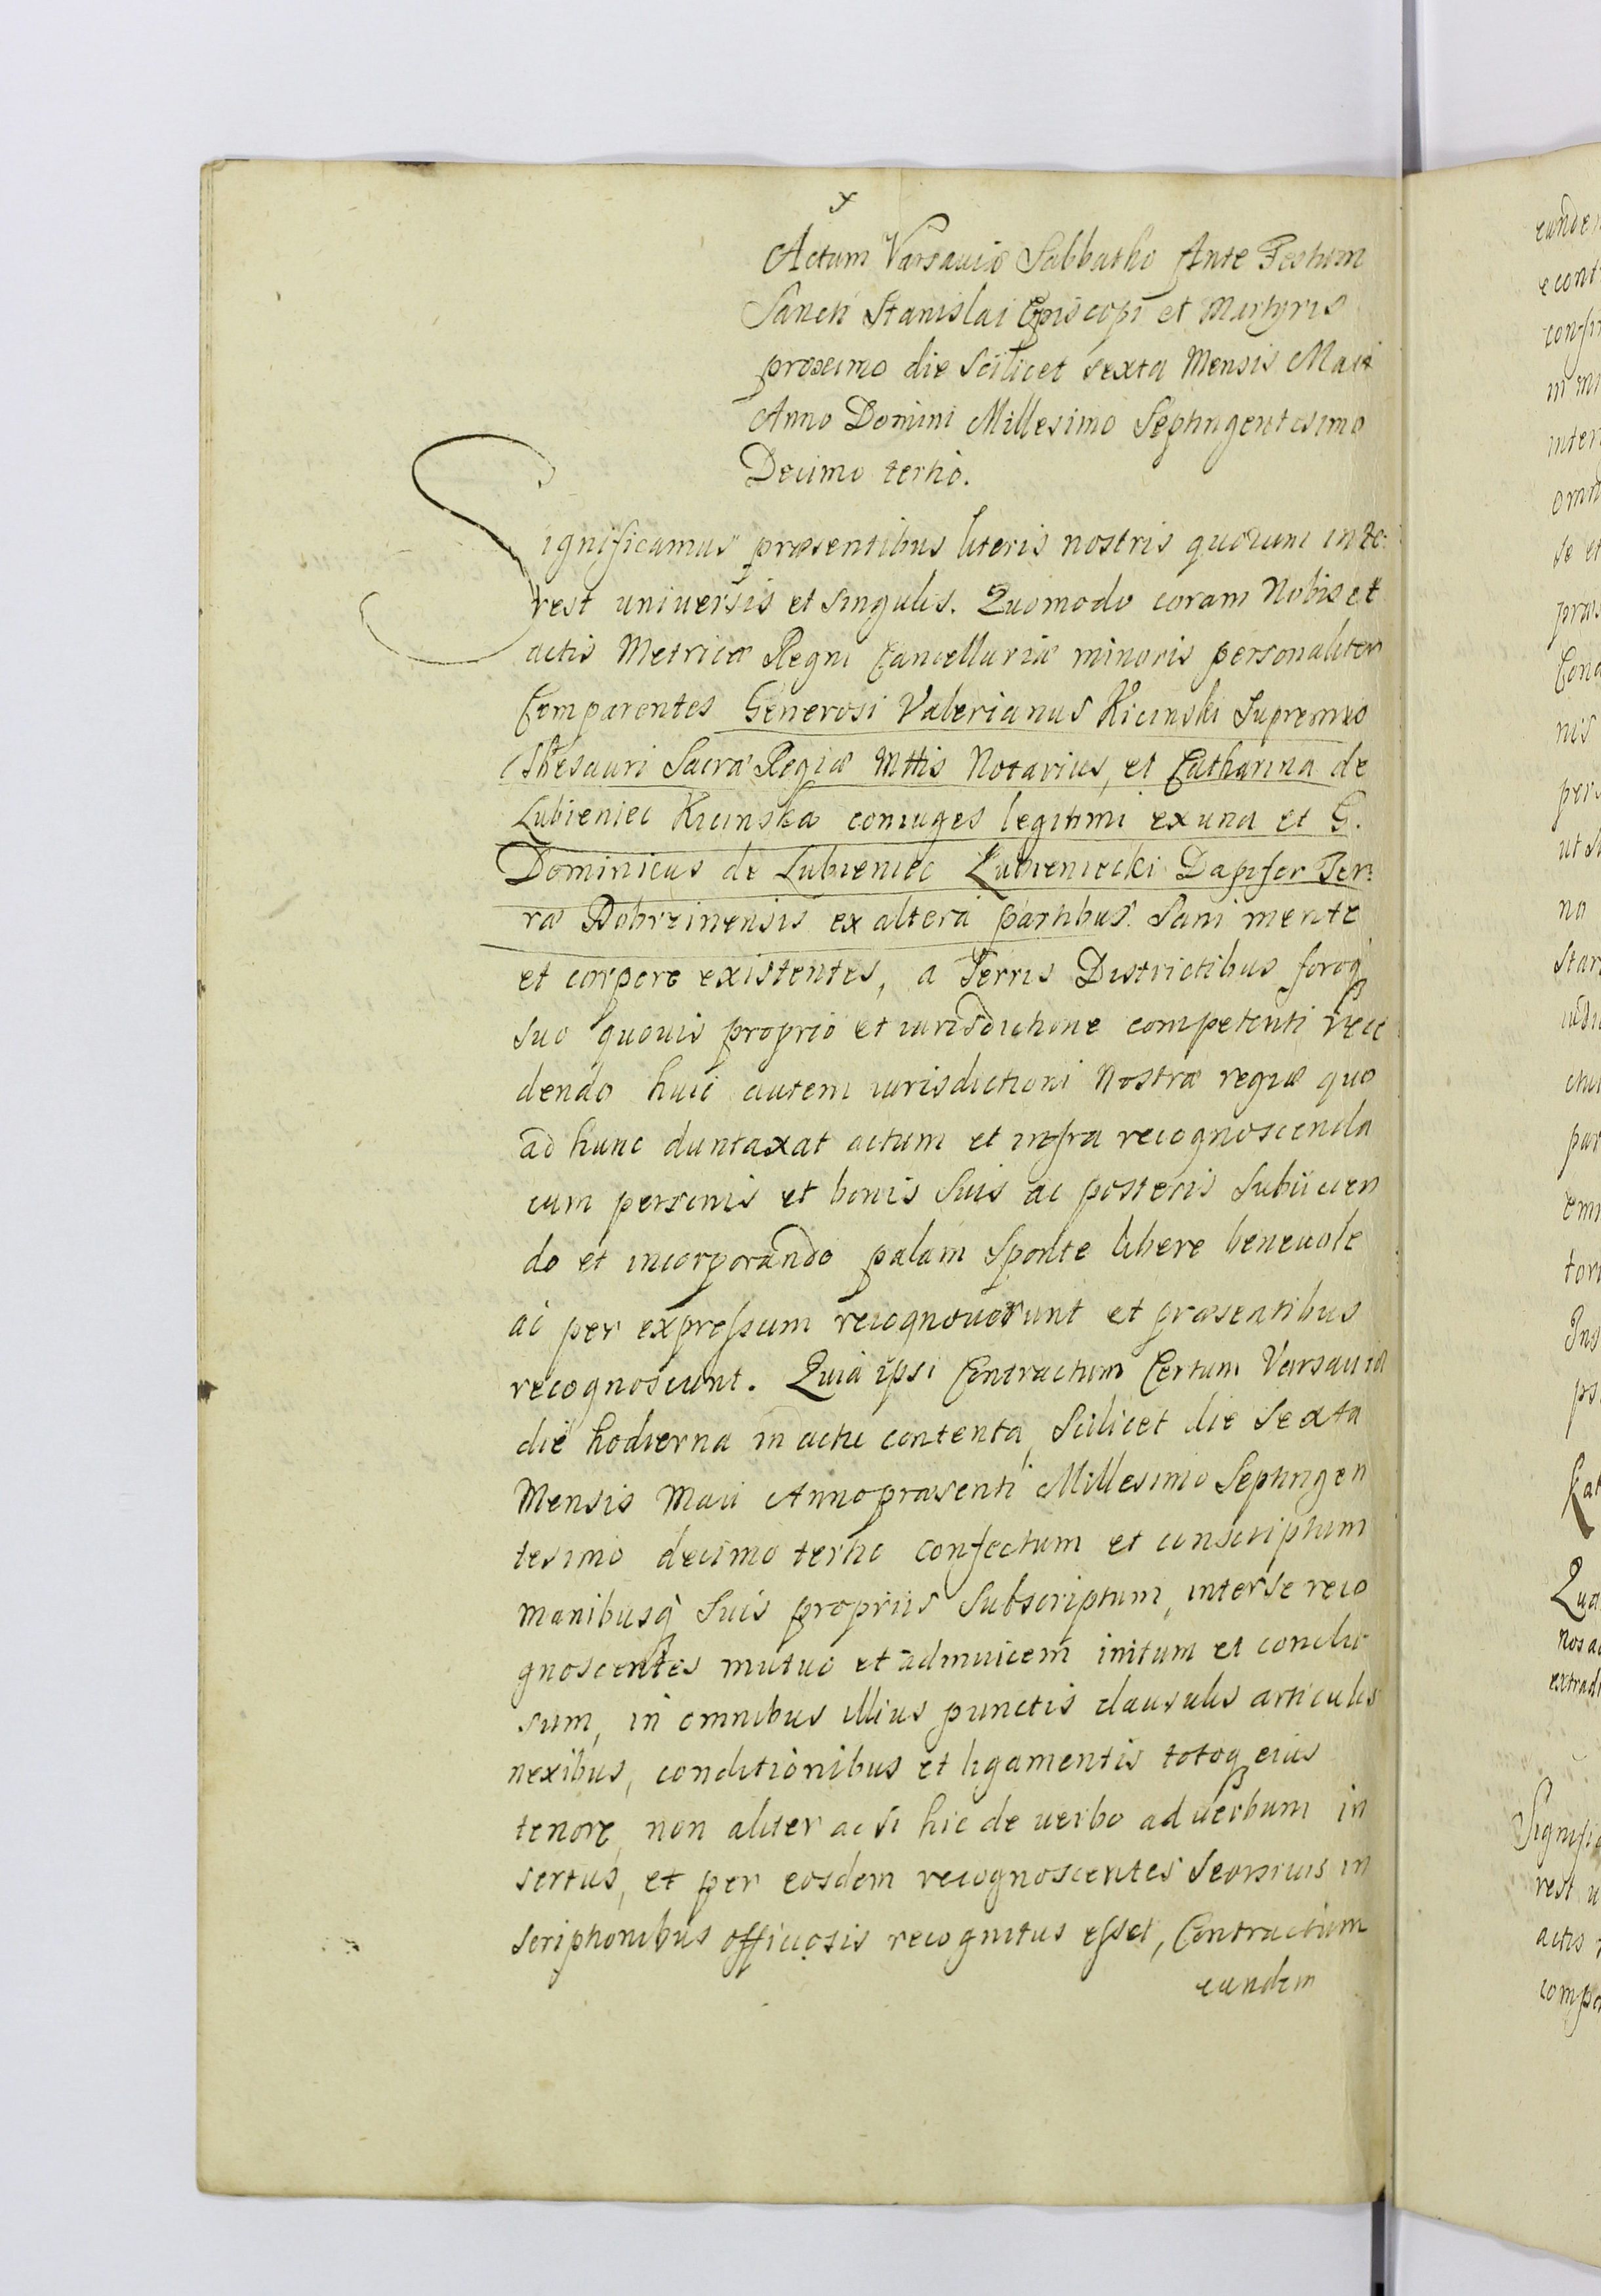 Actum Varsaviæ Sabbatho Ante Festum
Sancti Stanislai Episcopi et Martyris
proximo die Scilicet sexta Mensis Maii
Anno Domini Millesimo Septingentesimo
Decimo tertio.
Significamus præsentibus literis nostris quorum inte:
rest universis et singulis. Quomodo coram Nobis et
actis Metricæ Regni Cancellariæ minoris personaliter
Comparentes Generosi Valerianus Kicinski Supremus
Thesauri Sacræ Regiæ Mttis Notarius, et Catharina de
Lubieniec Kicinska coniuges legitimi ex una et G.
Dominicus de Lubieniec Lubieniecki Dapifer Ter:
ræ Dobrzinensis ex altera partibus. Sani mente
et corpore existentes, a Terris Districtibus foroq
suo quovis proprio et iurisdictione competenti rece
dendo huic autem iurisdictioni Nostræ regiæ quo
ad hunc duntaxat actum et infra recognoscenda
cum personis et bonis suis ac posteris subiicien
do et incorporando palam sponte libere benevole
ac per expressum recognoverunt et præsentibus
recognoscunt. Quia ipsi Contractum Certum Varsaviæ
die hodierna in actu contenta, Scilicet die Sexta
Mensis Maii Anno præsenti Millesimo Septingen
tesimo decimo tertio confectum et conscriptum
manibusq suis propriis Subscriptum, inter se reco
gnoscentes mutuo et adinuicem initum et conclu
sum, in omnibus illius punctis clausulis articulis
nexibus, conditionibus et ligamentis totoq eius
tenore, non aliter ac si hic de verbo ad verbum in
sertus, et per eosdem recognoscentes seorsivis in
scriptionibus officiosis recognitus esset, Contractum
eundem